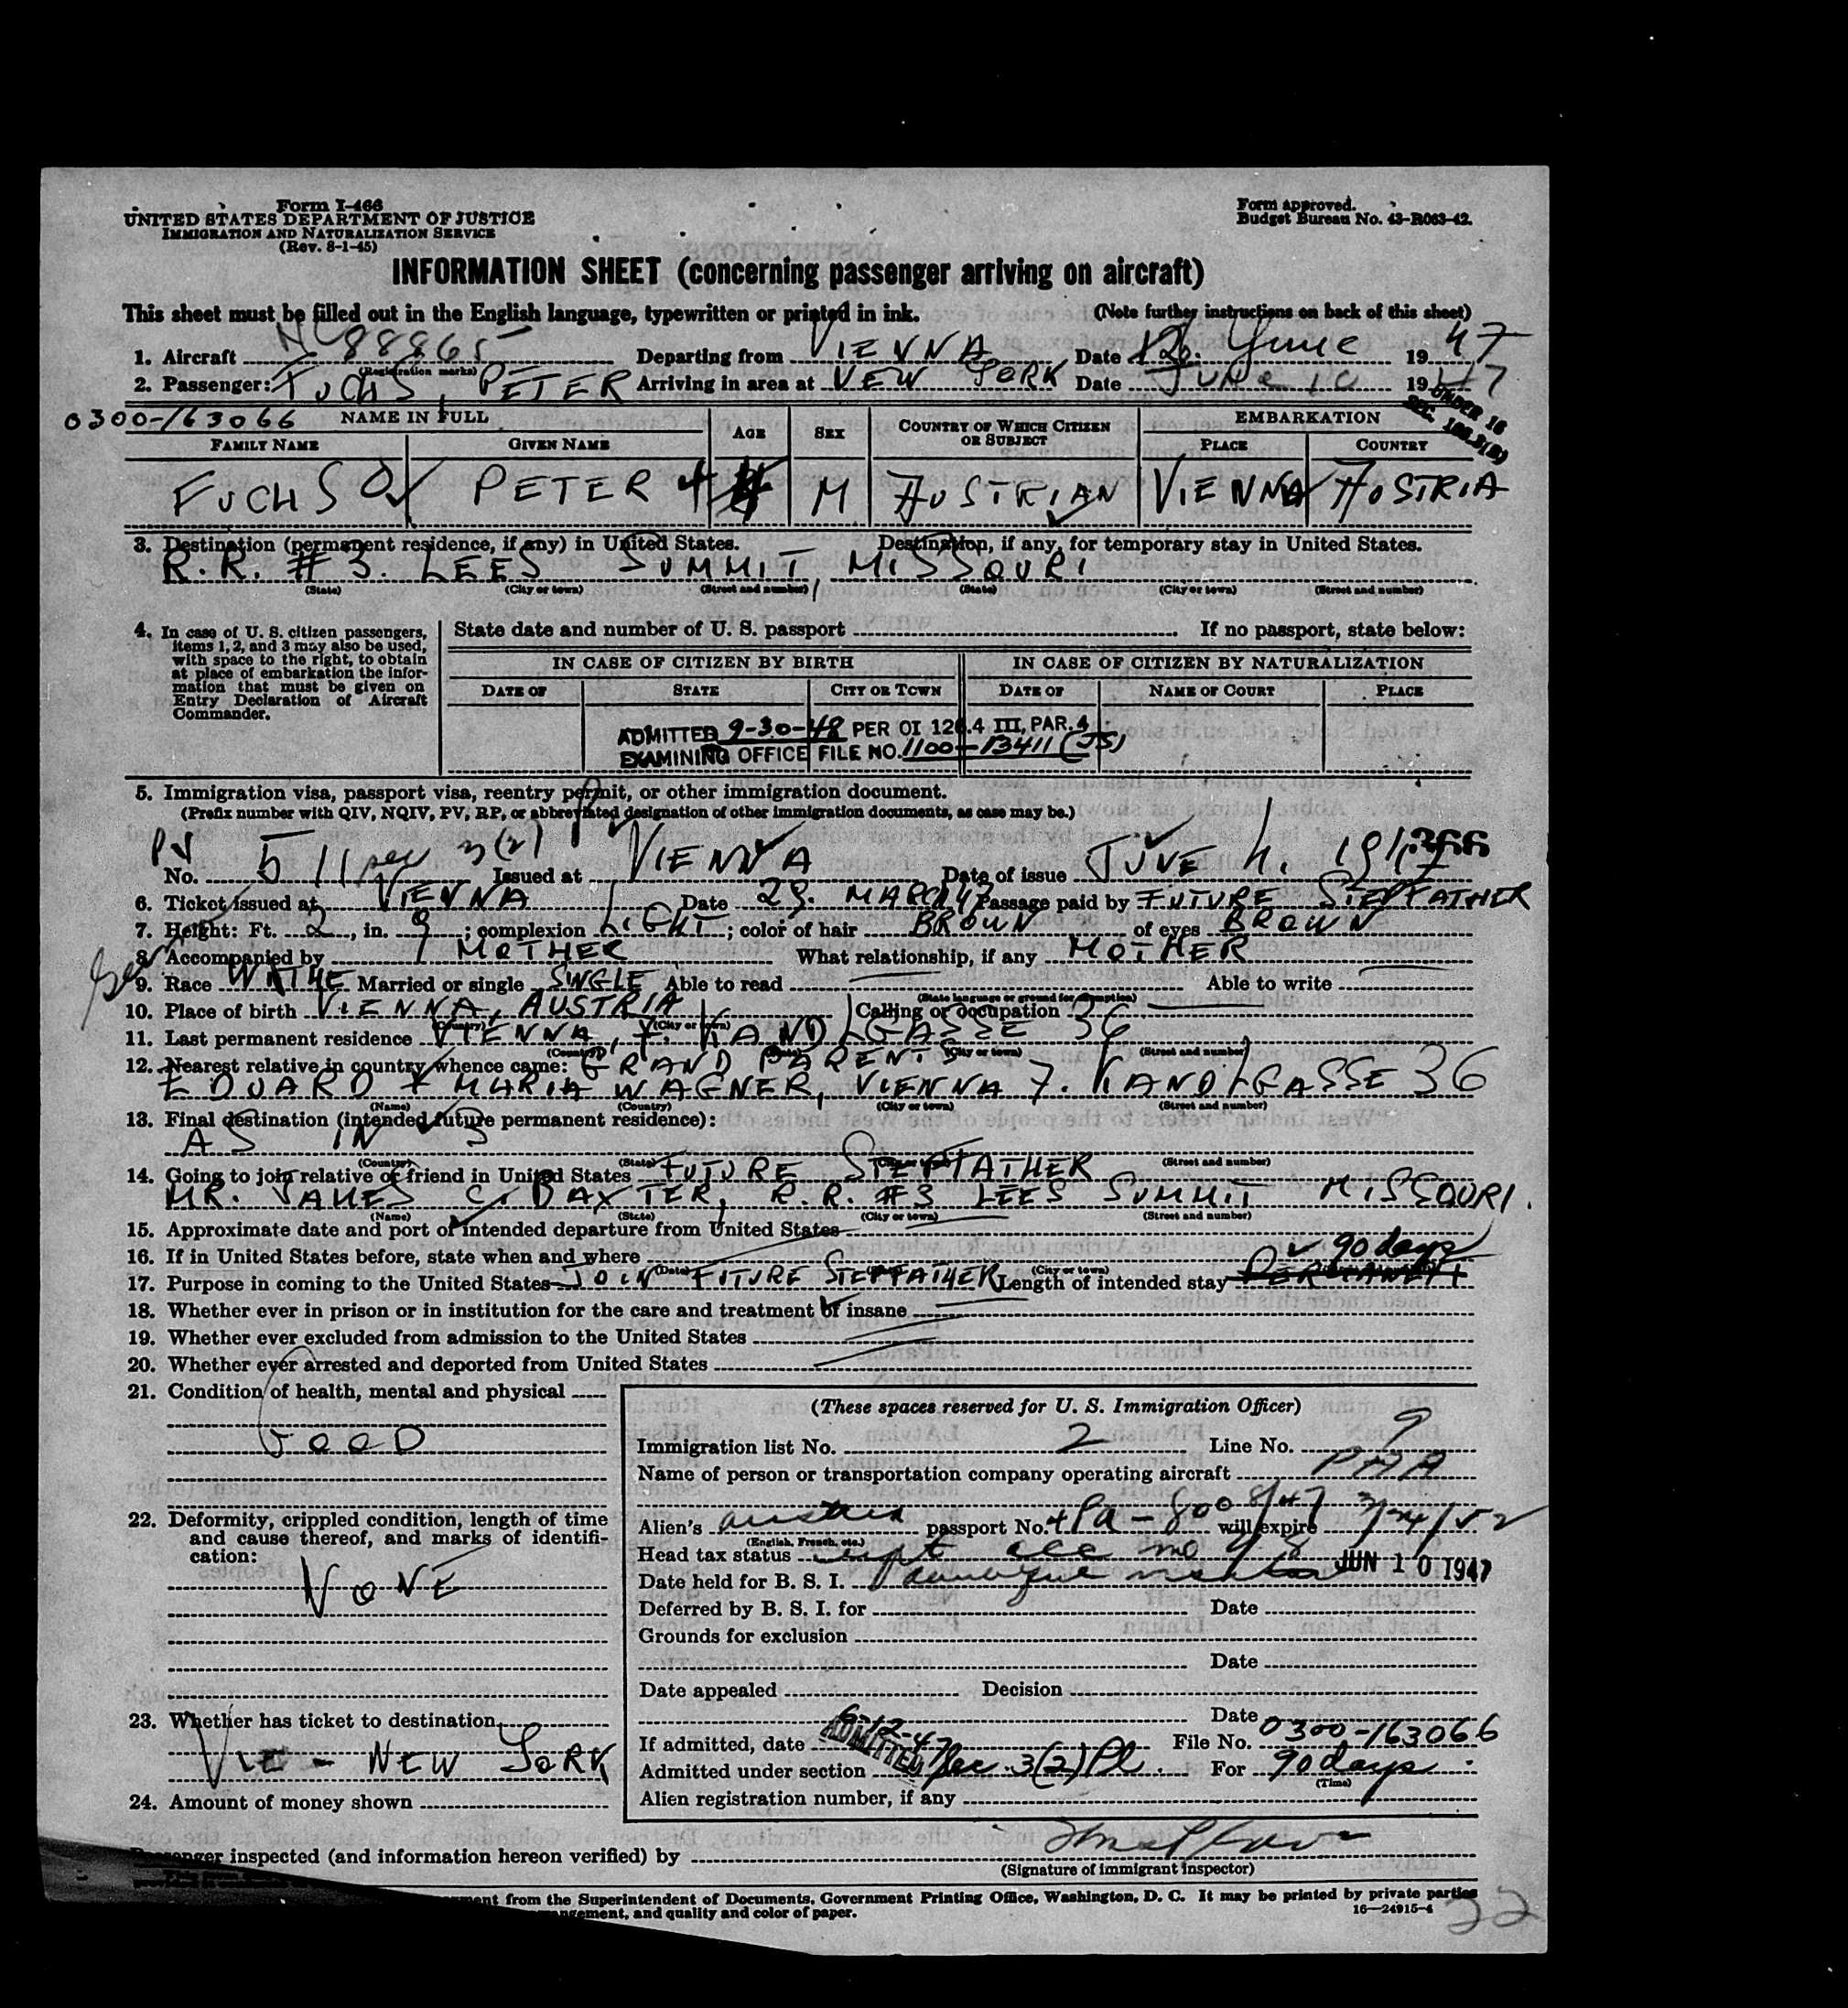 Form I-466
UNITED STATES DEPARTMENT OF JUSTICE
IMMIGRATION AND NATURALIZATION SERVICE
(Rev. 8-1-45)
Form approved.
Budget Bureau No. 43-R063-42.
INFORMATION SHEET (concerning passenger arriving on aircraft)
This sheet must be filled out in the English language, typewritten or printed in ink. (Note further instructions on back of this sheet)
1. Aircraft NC 88865 Departing from VIENNA Date June 1947
(Registration marks)
2. Passenger: FUCHS, PETER Arriving in area at NEW YORK Date JUNE 10 1947
0300-163066 NAME IN FULL AGE SEX COUNTRY OF WHICH CITIZEN OR SUBJECT EMBARKATION
UNDER 16
FAMILY NAME GIVEN NAME PLACE COUNTRY
FUCHS PETER 4 M AUSTRIAN VIENNA AUSTRIA
3. Destination (permanent residence, if any) in United States. Destination, if any, for temporary stay in United States.
R.R. #3. LEES SUMMIT, MISSOURI
(State) (City or town) (Street and number) (State) (City or town) (Street and number)
4. In case of U. S. citizen passengers, items 1, 2, and 3 may also be used, with space to the right, to obtain at place of embarkation the information that must be given on Entry Declaration of Aircraft Commander.
State date and number of U. S. passport If no passport, state below:
IN CASE OF CITIZEN BY BIRTH IN CASE OF CITIZEN BY NATURALIZATION
DATE OF STATE CITY OR TOWN DATE OF NAME OF COURT PLACE
ADMITTED 9-30-48 PER OI 126.4 III, PAR. 4
EXAMINING OFFICE FILE NO. 1100-13411 (JS)
5. Immigration visa, passport visa, reentry permit, or other immigration document.
(Prefix number with QIV, NQIV, PV, RP, or abbreviated designation of other immigration documents, as case may be.)
PV
No. 511 sec 3(2) Issued at VIENNA Date of issue JUNE 4. 1947 366
6. Ticket issued at VIENNA Date 29. MARCH 47 Passage paid by FUTURE STEPFATHER
7. Height: Ft. 2, in. 9; complexion LIGHT; color of hair BROWN of eyes BROWN
8. Accompanied by MOTHER What relationship, if any MOTHER
9. Race WITHE Married or single SINGLE Able to read Able to write
(State language or ground for exemption)
10. Place of birth VIENNA, AUSTRIA Calling or occupation
(Country) (City or town)
11. Last permanent residence VIENNA, 7. KANDLGASSE 36
(Country) (City or town) (Street and number)
12. Nearest relative in country whence came: GRAND PARENTS
EDUARD + MARIA WAGNER, VIENNA 7. KANDLGASSE 36
(Name) (Country) (City or town) (Street and number)
13. Final destination (intended future permanent residence):
AS IN 3
(Country) (State) (City or town) (Street and number)
14. Going to join relative or friend in United States FUTURE STEPFATHER
MR. JAMES C. BAXTER, R.R. #3 LEES SUMMIT MISSOURI.
(Name) (State) (City or town) (Street and number)
15. Approximate date and port of intended departure from United States
16. If in United States before, state when and where 90 days
(Date) (City or town)
17. Purpose in coming to the United States JOIN FUTURE STEPFATHER Length of intended stay PERMANENT
18. Whether ever in prison or in institution for the care and treatment of insane
19. Whether ever excluded from admission to the United States
20. Whether ever arrested and deported from United States
21. Condition of health, mental and physical
GOOD
22. Deformity, crippled condition, length of time and cause thereof, and marks of identification:
NONE
23. Whether has ticket to destination
VIE - NEW YORK
24. Amount of money shown
(These spaces reserved for U. S. Immigration Officer)
Immigration list No. 2 Line No. 9
Name of person or transportation company operating aircraft PAA
Alien's passport No. will expire 3/24/52
(English, French, etc.)
Head tax status
Date held for B. S. I. JUN 10 1947
Deferred by B. S. I. for Date
Grounds for exclusion
Date
Date appealed Decision
Date
If admitted, date 6-12-47 File No. 0300-163066
ADMITTED
Admitted under section Sec. 3(2) For 90 days
(Time)
Alien registration number, if any
Passenger inspected (and information hereon verified) by
(Signature of immigrant inspector)
from the Superintendent of Documents, Government Printing Office, Washington, D. C. It may be printed by private parties
and quality and color of paper. 16—24915-4
22